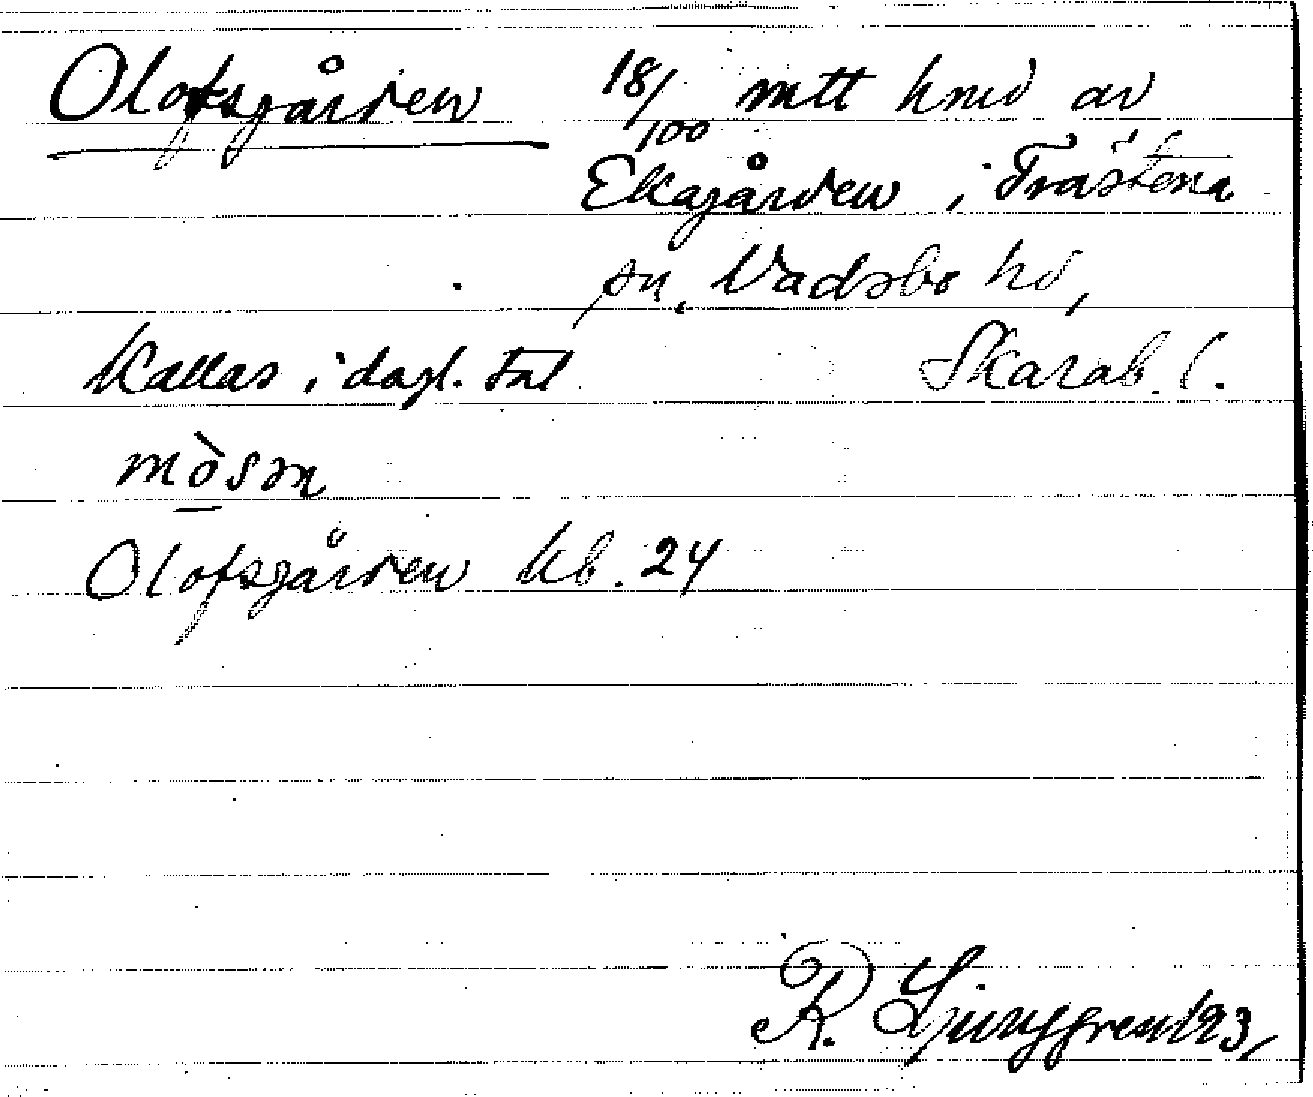 Olofsgården 18/100 mtt hmd av
Ekagården i Trästena
sn, Vadsbo hd,
Kallas i dagl. tal Skarab. l.
mò̠sən
Olofsgården kb. 24
R. Ljunggren 193